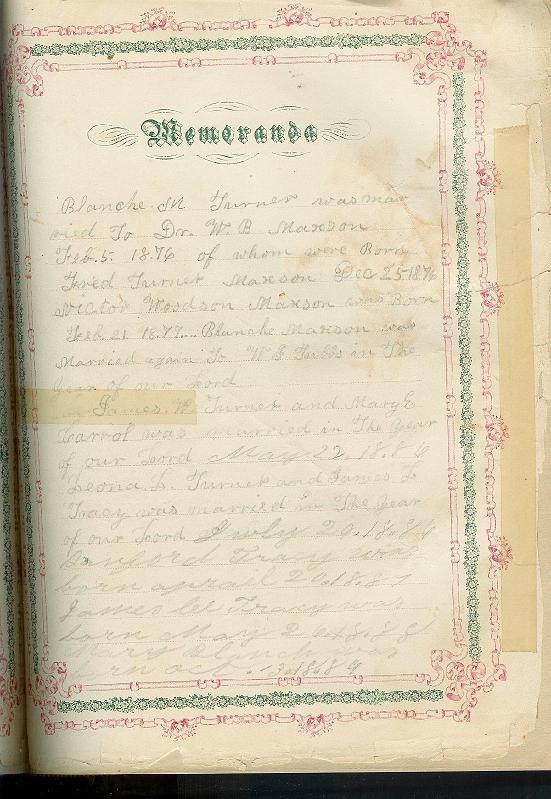 Memoranda
Blanche M Turner was mar
ried To Dr. W. B Maxson
Feb. 5- 1876 of whom were Born
Fred Turner Maxson Dec 25 1876
Victor Woodson Maxson was Born
Feb. 21 1877... Blanche Maxson was
Married again To W. S. in The
year of our Lord
James. W. Turner and Mary E
Carrol was married in The year
of our Lord May. 22, 18.86
Leona L. Turner and James L
Tracy was married in The year
of our Lord July 20, 18.86
Tracy was
born aprail 26, 18.87
James W Tracy was
born May 26, 18.88
Mary was
born oct. 1889